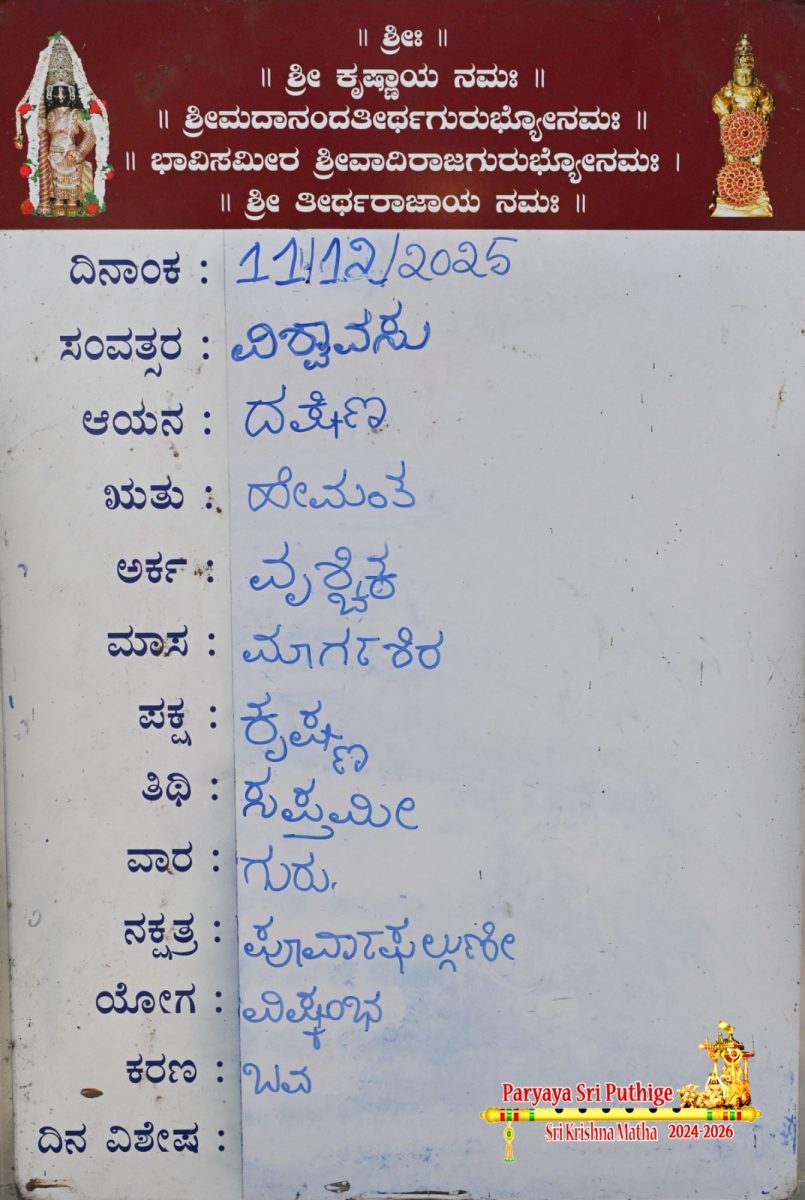 ॥ ಶ್ರೀಃ ॥
॥ ಶ್ರೀ ಕೃಷ್ಣಾಯ ನಮಃ ॥
॥ ಶ್ರೀಮದಾನಂದತೀರ್ಥಗುರುಭ್ಯೋನಮಃ ॥
॥ ಭಾವಿಸಮೀರ ಶ್ರೀವಾದಿರಾಜಗುರುಭ್ಯೋನಮಃ ।
॥ ಶ್ರೀ ತೀರ್ಥರಾಜಾಯ ನಮಃ ॥
ದಿನಾಂಕ : 11/12/2025
ಸಂವತ್ಸರ : ವಿಶ್ವಾವಸು
ಆಯನ : ದಕ್ಷಿಣ
ಋತು : ಹೇಮಂತ
ಅರ್ಕ : ವೃಶ್ಚಿಕ
ಮಾಸ : ಮಾರ್ಗಶಿರ
ಪಕ್ಷ : ಕೃಷ್ಣ
ತಿಥಿ : ಸಪ್ತಮೀ
ವಾರ : ಗುರು.
ನಕ್ಷತ್ರ : ಪೂರ್ವಾಫಲ್ಗುಣೀ
ಯೋಗ : ವಿಷ್ಕಂಭ
ಕರಣ : ಬವ
ದಿನ ವಿಶೇಷ :
Paryaya Sri Puthige
Sri Krishna Matha 2024-2026